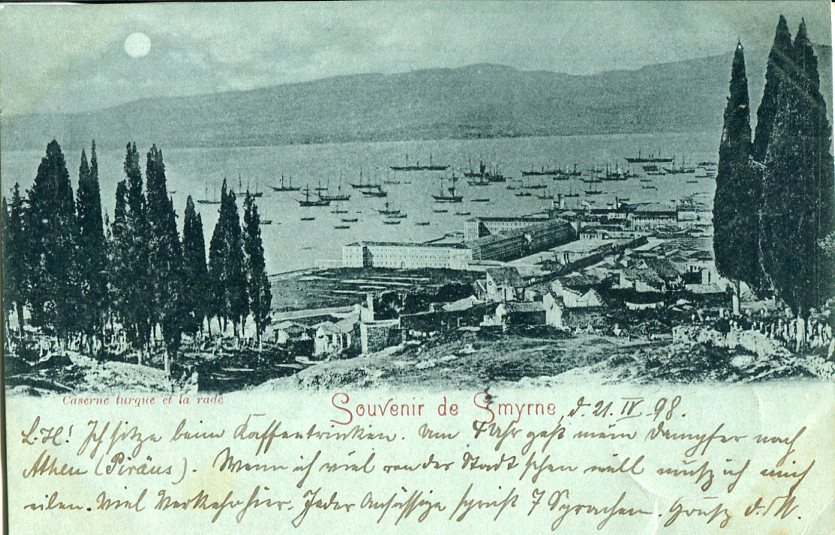 Caserne turque et la rade
Souvenir de Smyrne, d. 21. IV. 98.
L. H.! Ich sitze beim Kaffeetrinken. Um 4 Uhr geht mein Dampfer nach
Athen (Piräus). Wenn ich viel von der Stadt sehen will muß ich mich
eilen. Viel Verkehr hier. Jeder Ansässige spricht 7 Sprachen. Gruß d.